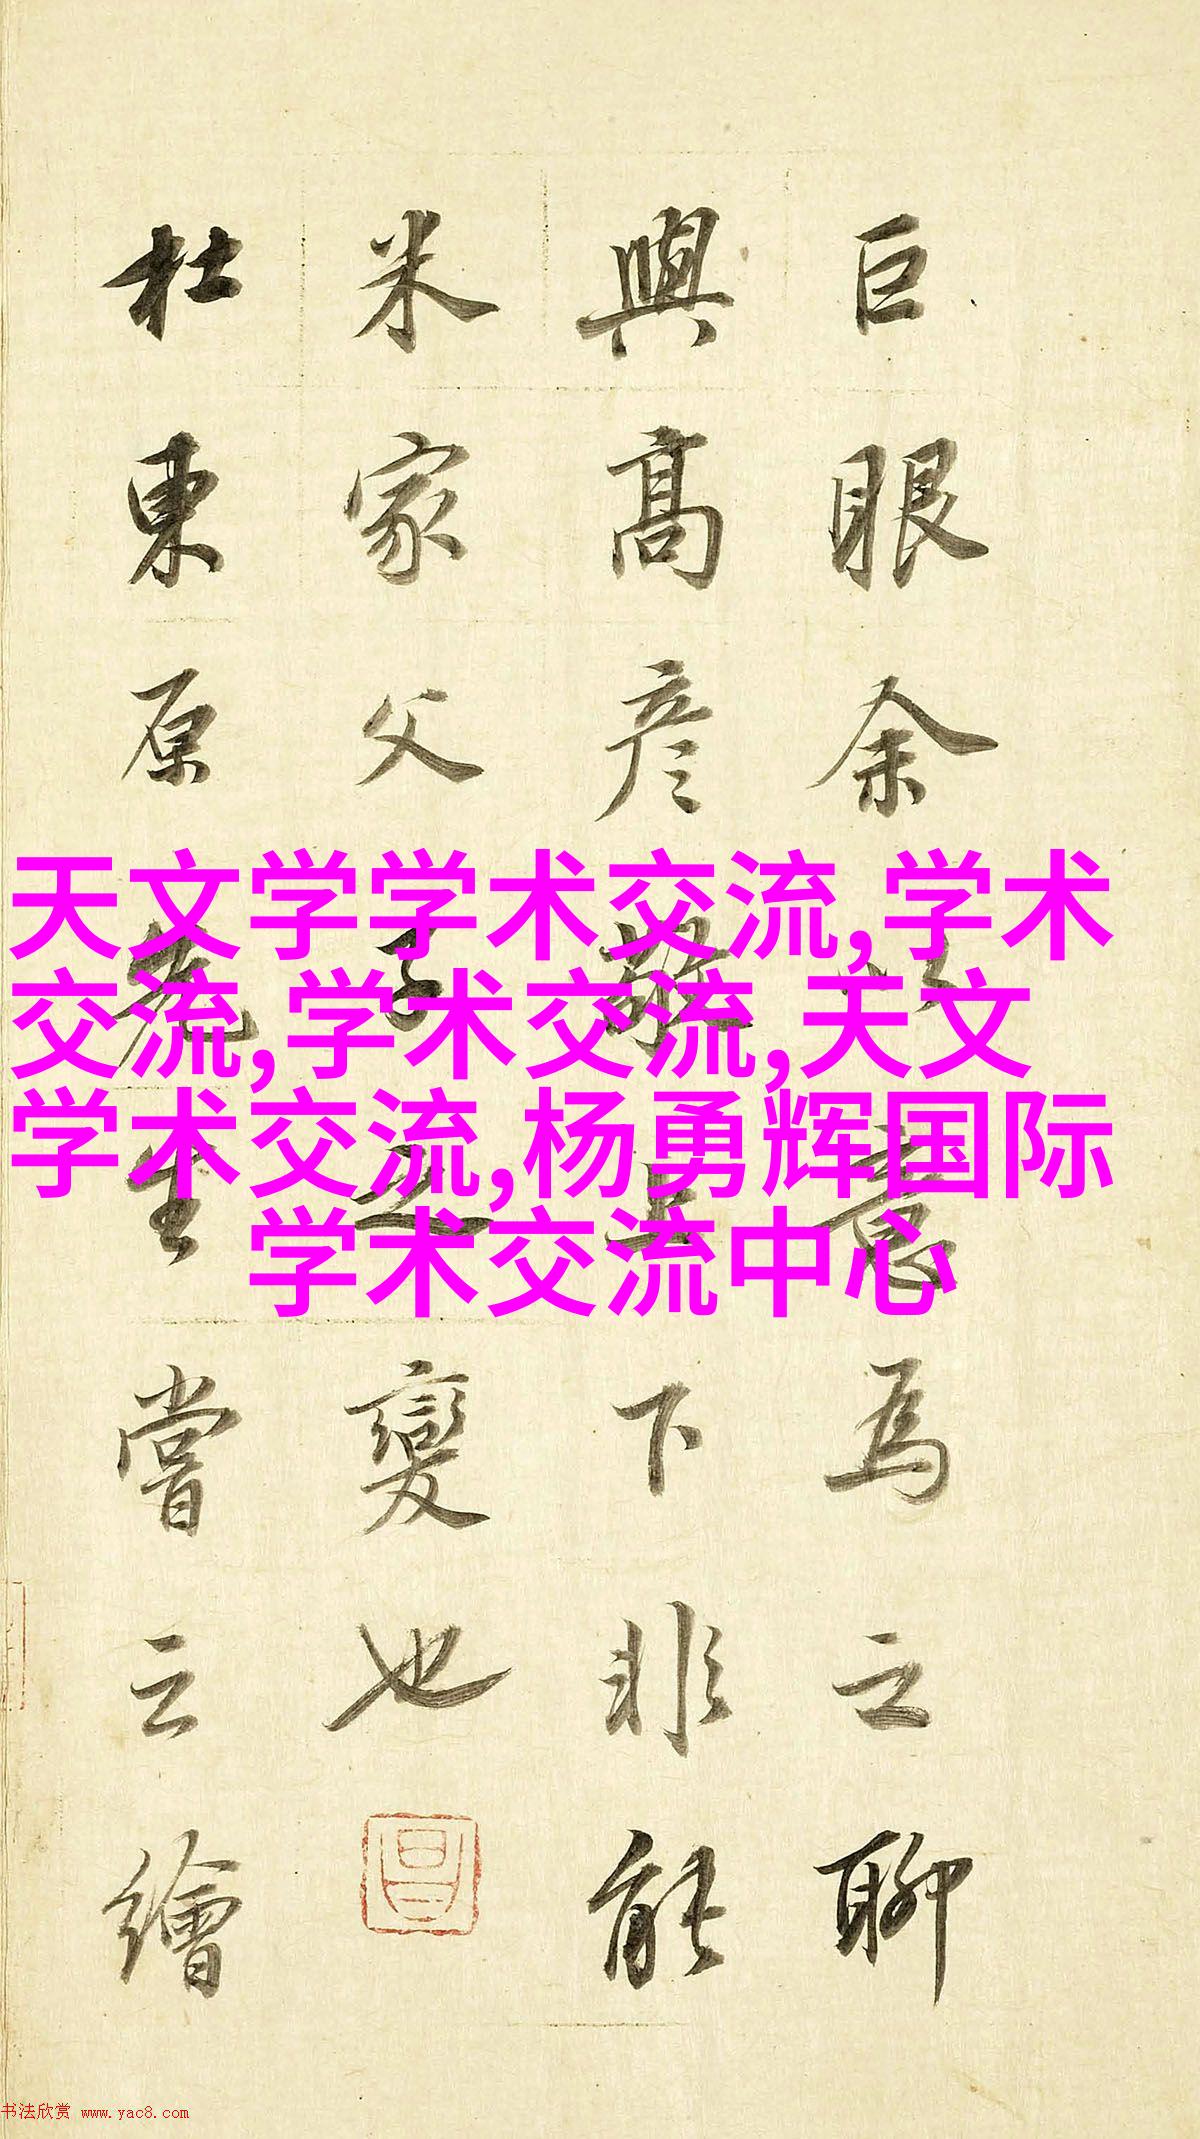 巨眼余以意為之聊
與高彦敬上下非能
米家父子之變也
杜東原先生嘗云繪
天文学学术交流,学术
交流,学术交流,天文
学术交流,杨勇辉国际
学术交流中心
书法欣赏 www.yac8.com